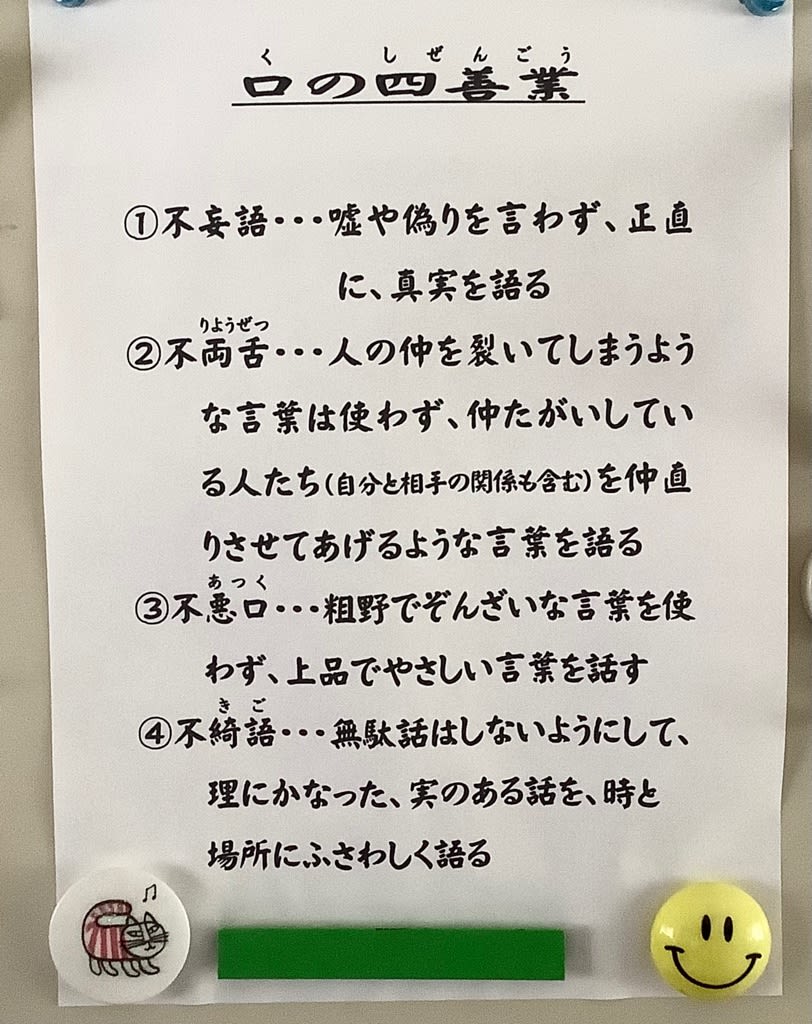 く しぜんごう
口の四善業
①不妄語・・・嘘や偽りを言わず、正直
に、真実を語る
りようぜつ
②不両舌・・・人の仲を裂いてしまうよう
な言葉は使わず、仲たがいしてい
る人たち（自分と相手の関係も含む）を仲直
りさせてあげるような言葉を語る
あつく
③不悪口・・・粗野でぞんざいな言葉を使
わず、上品でやさしい言葉を話す
きご
④不綺語・・・無駄話はしないようにして、
理にかなった、実のある話を、時と
場所にふさわしく語る